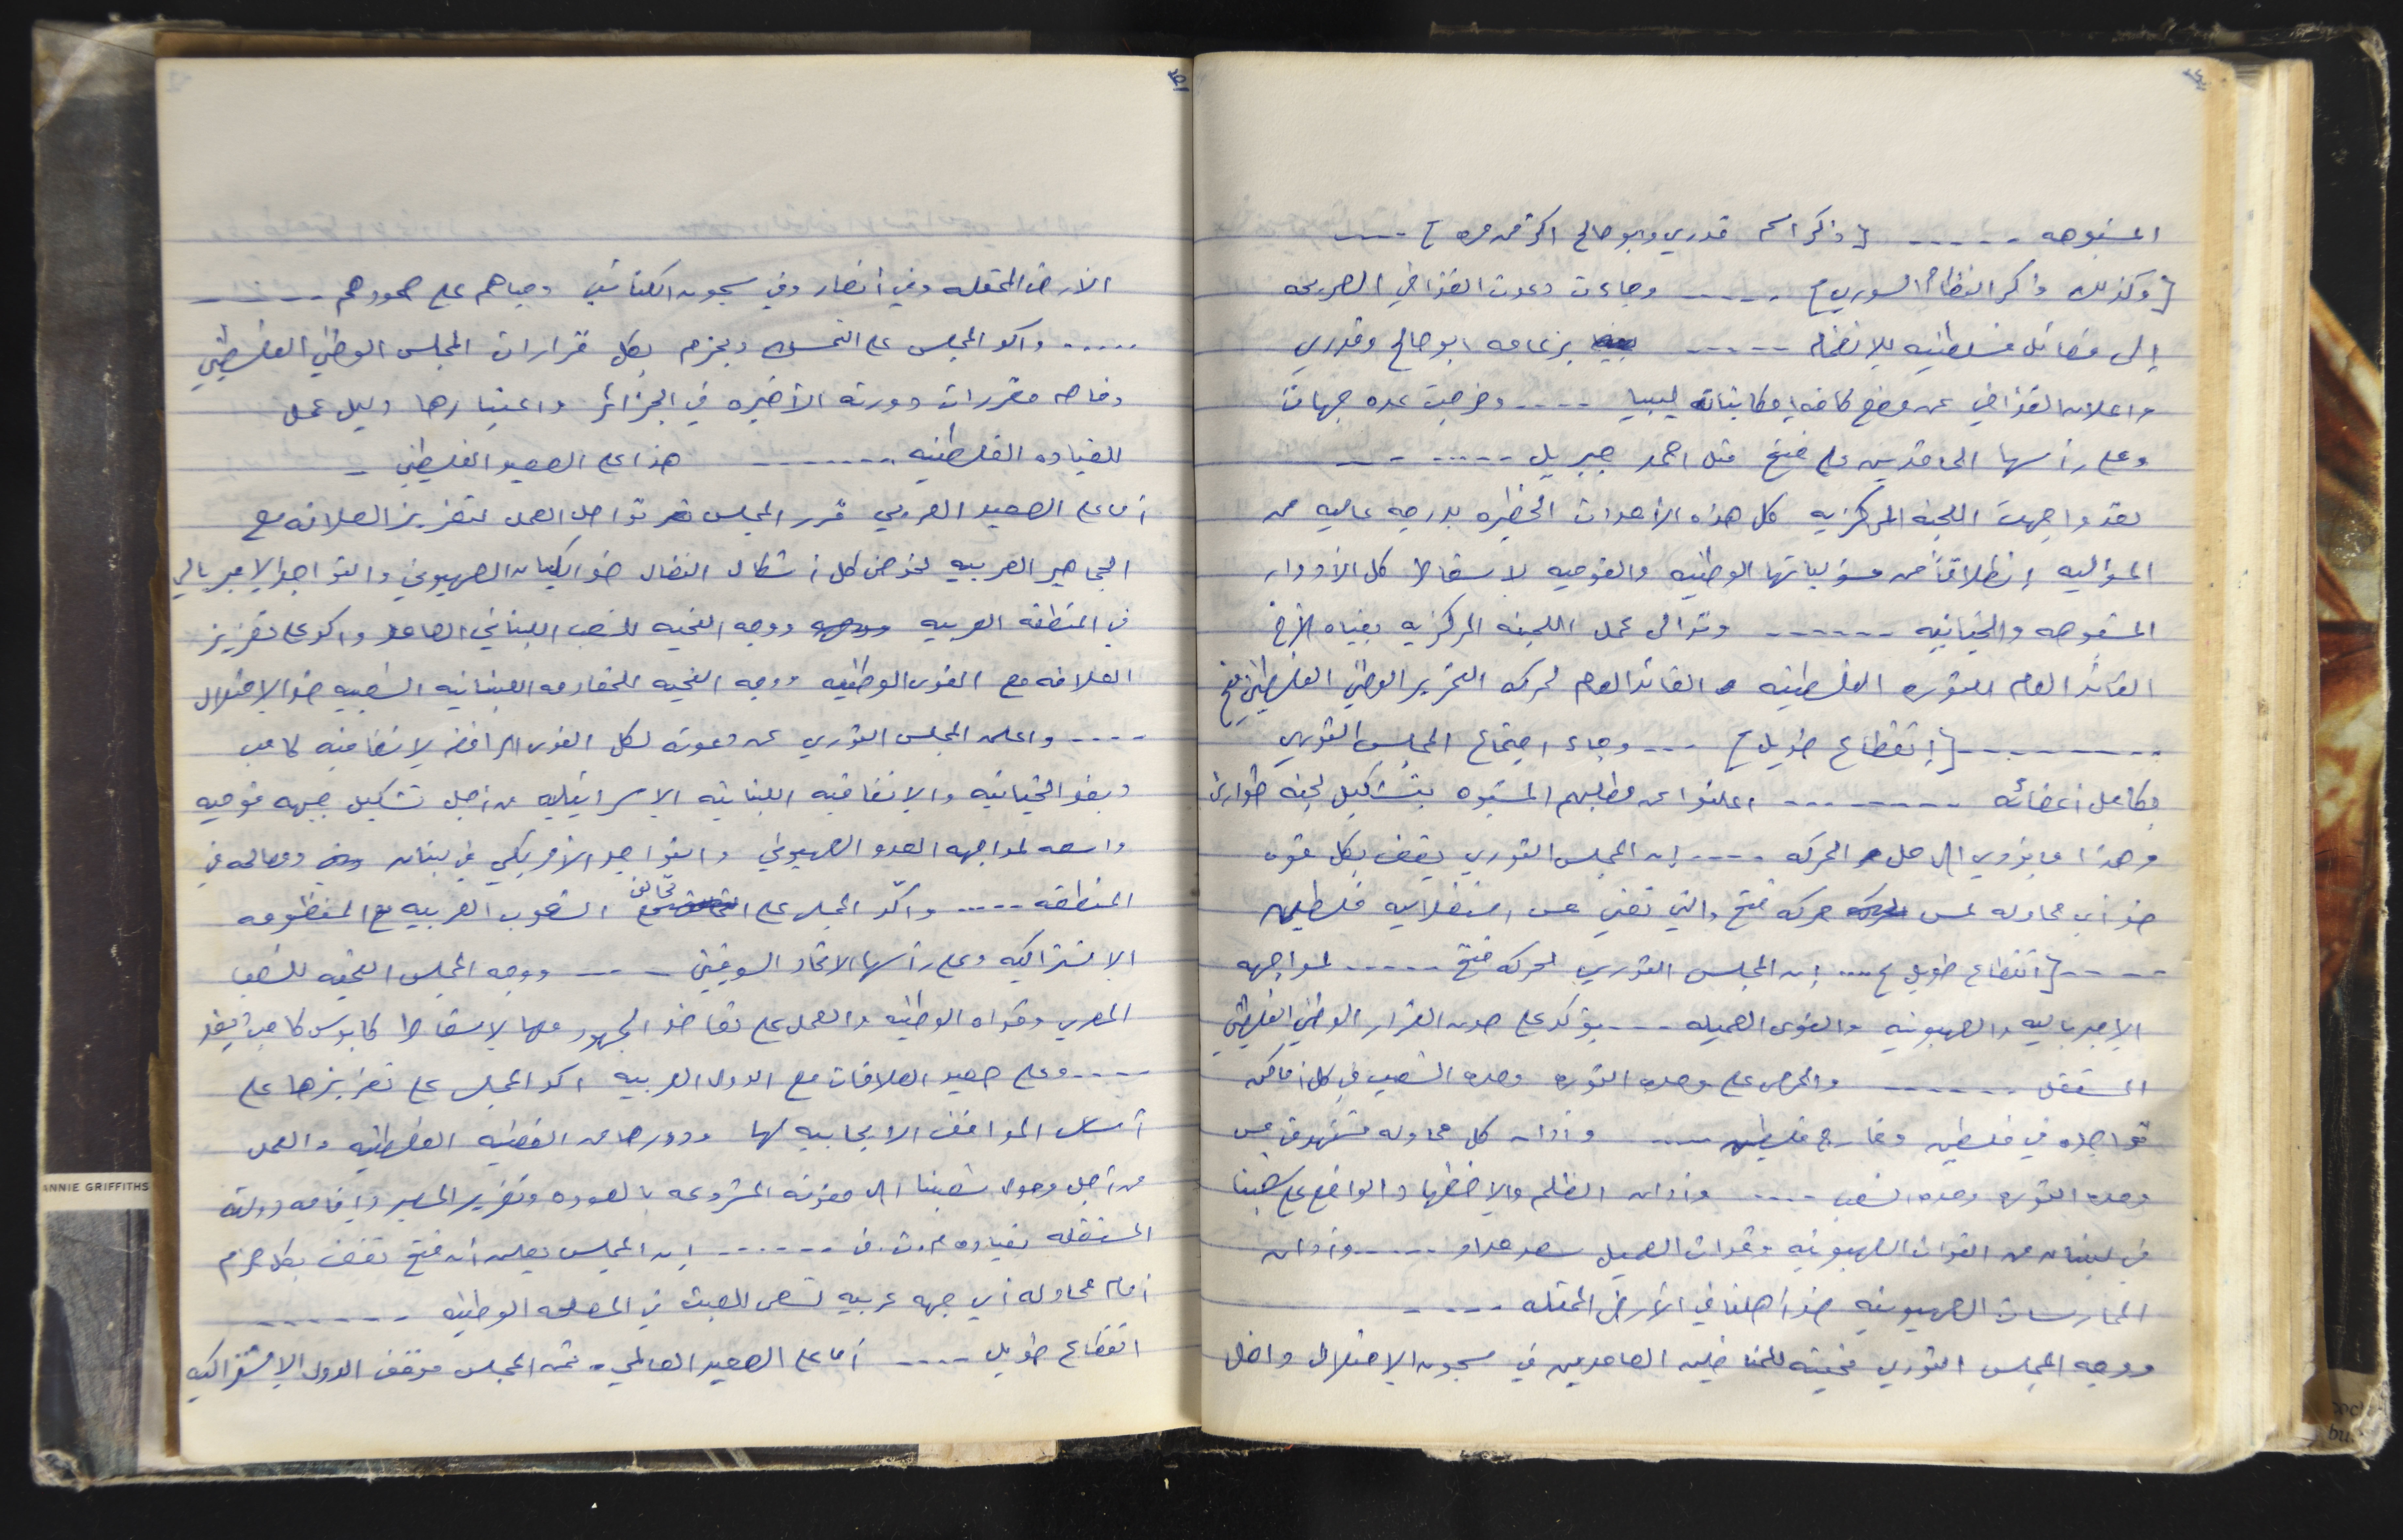 المشبوهه ----- {ذكر اسم قدري وابو صالح اكثر من مره} ----
{وكذلك ذكر النظام السوري} ----- وجاءت دعوت القذافي الصريحه
إلى فصائل فلسطينيه للإنضمام ----- بزعامه ابو صالح وقدري
واعلان القذافي عن وضع كافه إمكانيات ليبيا ---- وخرجت عده جهات
وعلى رأسها الحاقدين على فتح مثل احمد جبريل -------
لقد واجهت اللجنه المركزيه كل هذه الأحداث الخطيره بدرجه عاليه من
المسؤليه إنطلاقاً من مسؤلياتها الوطنيه والقوميه لاسقاط كل الأدوار
المشبوهه والخيانيه ------ وتوالى عمل اللجنه المركزيه بقياده الأخ
القائد العام للثوره الفلسطينيه و القائد العام لحركه التحرير الوطني الفلسطيني فتح
-------- {إنقطاع طويل} --- وجاء اجتماع المجلس الثوري
بكامل أعضائه -------- اعلنوا عن مطلبهم المشبوه بتشكيل لجنه طوارئ
وهذا ما يؤدي الى حل الحركه ---- إن المجلس الثوري يقف بكل قوه
ضد أي محاوله لمس حركه فتح والتي تعني مس استقلاليه فلسطين
----- {انقطاع طويل} .... إن المجلس الثوري لحركه فتح ----- لمواجهه
الإمبرياليه والصهيونيه والقوى العميله --- يؤكد على صون القرار الوطني الفلسطيني
المستقل ------ والحرص على وحده الثوره وحده الشعب في كل أماكن
تواجده في فلسطين وخارج فلسطين ---- وأدان كل محاوله تستهدف مس
وحده الثوره وحده الشعب ---- وأدان الظلم والإضطهاد الواقع على شعبنا
في لبنان من القوات الصهيونيه وقوات العميل سعد حداد ----- وأدان
الممارسات الصهيونيه ضد أهلنا في الأرض المحتله -----
ووجه المجلس الثوري تحيته للمناضلين الصامدين في سجون الإحتلال داخل
الأرض المحتله وفي أنصار وفي سجون الكتائب وحياهم على صمودهم ------
----- واكد المجلس على التمسك وبحزم بكل قرارات المجلس الوطني الفلسطيني
وخاصه مقررات دورته الأخيره في الجزائر واعتبارها دليل عمل
للقياده الفلسطينيه ------- هذا على الصعيد الفلسطيني -
أما على الصعيد العربي قرر المجلس تواصل العمل لتعزيز العلاقه مع
الجماهير العربيه لخوض كل أشكال النضال ضد الكيان الصهيوني والتواجد الإمبريالي
في المنطقه العربيه ووجه التحيه للشعب اللبناني الصامد واكد على تعزيز
العلاقه مع القوى الوطنيه ووجه التحيه للمقاومه اللبنانيه الشعبيه ضد الإحتلال
---- واعلن المجلس الثوري عن دعوته لكل القوى الرافضه لإتفاقيه كامب
ديفد الخيانيه والإتفاقيه اللبنانيه الإسرائيليه من أجل تشكيل جبهه قوميه
واسعه لمواجهه العدو الصهيوني والتواجد الأمريكي في لبنان ومصالحه في
المنطقه ----- واكّد المجلس على تحالف الشعوب العربيه مع المنظومه
الإشتراكيه وعلى رأسها الاتحاد السوفيتي ---- ووجه المجلس التحيه للشعب
المصري وقواه الوطنيه والعمل على تعاضد الجهود معها لإسقاط كابوس كامب ديفد
----- وعلى صعيد العلاقات مع الدول العربيه اكد المجلس على تعزيزها على
أساس المواقف الايجابيه لها ودورها من القضيه الفلسطينيه والعمل
من أجل وصول شعبنا الى حقوقه المشروعه بالعوده وتقرير المصير وإقامه دولته
المستقله بقياده م.ت.ف ------ إن المجلس يعلن أن فتح تقف بكل حزم
أمام محاوله أي جهه عربيه تسعى للعبث في المصلحه الوطنيه ------
انقطاع طويل ---- أما على الصعيد العالمي - ثمن المجلس موقف الدول الإشتراكيه
ANNIE GRIFFITHS